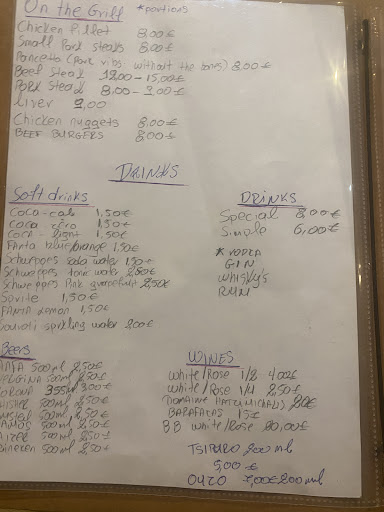 On the Grill *portions
Chicken fillet 8,00€
Small Pork steaks 8,00€
Pancetta (pork ribs without the bones) 8,00€
Beef steak 12,00-15,00€
Pork steak 8,00-9,00€
Liver 9,00
Chicken nuggets 8,00€
BEEF BURGERS 8,00€
DRINKS
Soft drinks
Coca-cola 1,50€
Coca zero 1,50€
Coca-light 1,50€
Fanta blue/orange 1,50€
Schweppes soda water 1,50€
Schweppes tonic water 2,50€
Schweppes Pink grapefruit 2,50€
Sprite 1,50€
FANTA lemon 1,50€
sparkling water 2,00€
DRINKS
Special 8,00€
Simple 6,00€
* VODKA
GIN
WHISKY'S
RUM
Beers
500ml 2,50€
500ml 2,50€
355ml 3,00€
500ml 2,50€
500ml 2,50€
500ml 2,50€
500ml 2,50€
500ml 2,50€
WINES
White/Rose 1/2 4,00€
White/Rose 1/4 2,50€
DOMAINE HATZIMICHALIS
15€
BB White/Rose 20,00€
TSIPURO 200ml
5,00€
OUZO 7,00€ 200ml